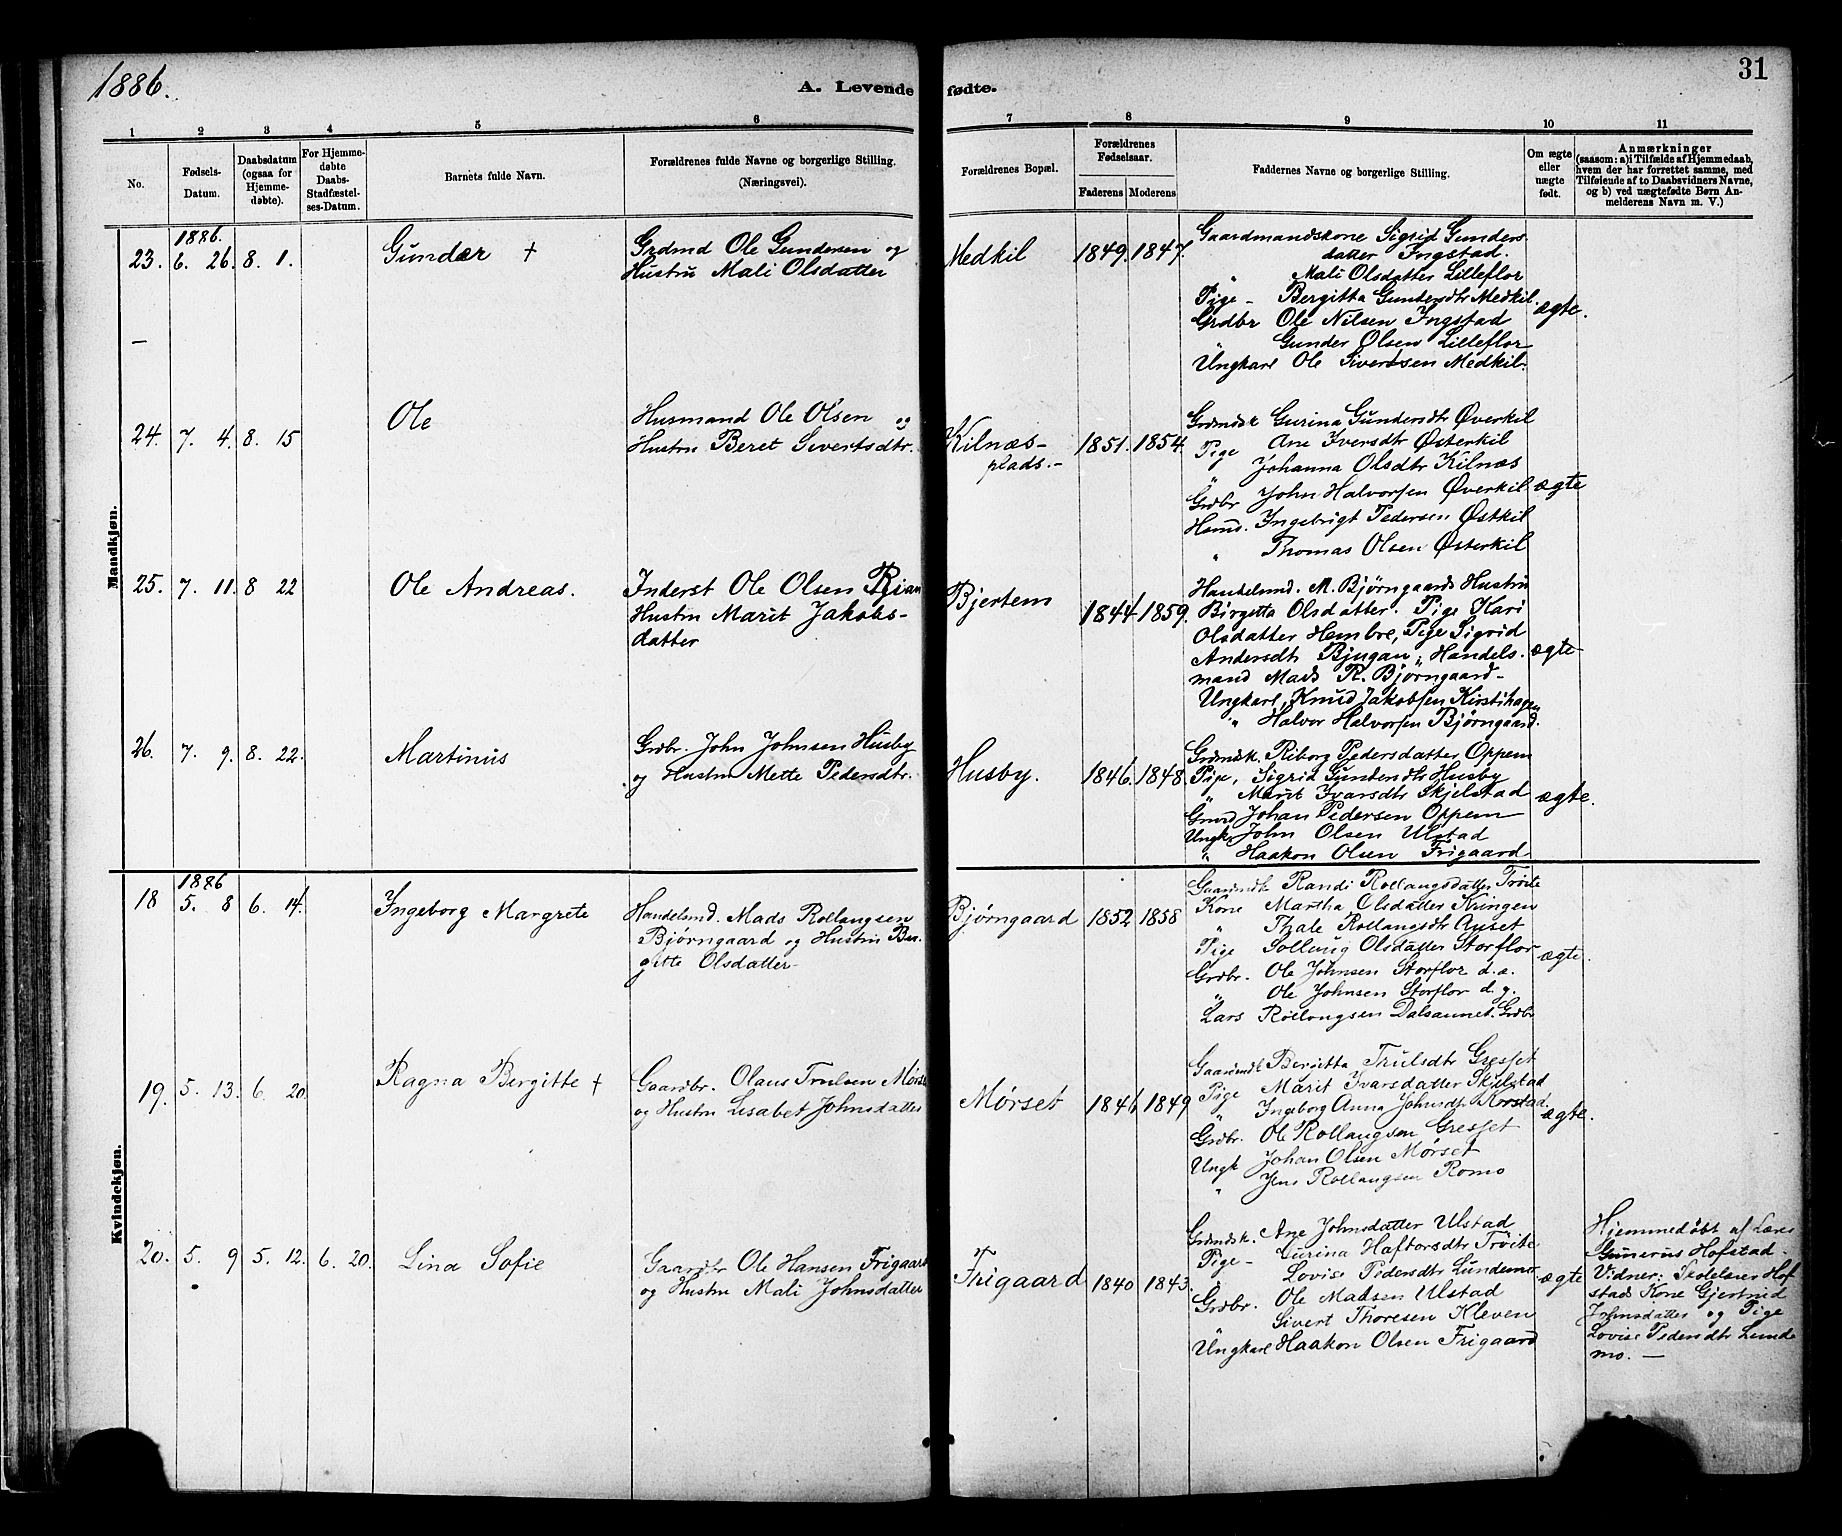 1886.
A. Levende fødte.
31
1 2 3 4 5 6 7 8 9 10 11
No.
Fødsels-
Datum.
Daabsdatum
(ogsaa for
Hjemme-
døbte).
For Hjemme-
døbte
Daabs-
Stadfæstel-
ses-Datum.
Barnets fulde Navn.
Forældrenes fulde Navne og borgerlige Stilling.
(Næringsvei).
Forældrenes Bopæl.
Forældrenes
Fødselsaar.
Faderens Moderens
Faddernes Navne og borgerlige Stilling.
Om ægte
eller
uægte
født.
Anmærkninger
(saasom: a) i Tilfælde af Hjemmedaab,
hvem der har forrettet samme, med
Tilføiende af to Daabsvidners Navne,
og b) ved uægtefødte Børn An-
melderens Navn m. V.)
Mandkjøn.
1886.
23. 6. 26. 8. 1.
Gunder +
Grdmd Ole Gundersen og
Hustru Mali Olsdatter
Medkil
1849. 1847.
Gaardmandskone Sigrid Gunders
datter Ingstad.
" Mali Olsdatter Lilleflor
Pige - Bergitta Gundersdtr Medkil.
Grdbr Ole Nilsen Ingstad
" Gunder Olsen Lilleflor
Ungkarl Ole Sivertsen Medkil.
ægte.
24. 7. 4. 8. 15
Ole
Husmand Ole Olsen og
Hustru Beret Sivertsdtr.
Kilnæs-
plads.-
1851. 1854.
Grdmdsk Gurina Gundersdtr Øverkil
Pige Ane Iversdtr Østerkil
" Johanna Olsdtr Kilnæs
Grdbr John Halvorsen Øverkil
Hsmd. Ingebrigt Pedersen Østkil
" Thomas Olsen Østerkil
ægte
25. 7. 11. 8 22
Ole Andreas.
Inderst Ole Olsen
Hustru Marit Jakobs-
datter
Bjertem
1844. 1859.
Handelsmd. M. Bjørngaards Hustru
Birgetta Olsdatter. Pige Kari
Olsdatter Hembre, Pige Sigrid
Andersdtr Bjugan, Handels.
mand Mads R. Bjørngaard-
Ungkarl, Knud Jakobsen Kirstihagen
" Halvor Halvorsen Bjørngaard.
ægte
26. 7. 9. 8. 22.
Martinus
Grdbr. John Johnsen Husby
og Hustru Mette Pedersdtr.
Husby.
1846. 1848.
Grdmdsk. Riborg Pedersdatter Oppem
Pige, Sigrid Gundersdtr Husby
" Marit Ivarsdtr Skjelstad
Grmd Johan Pedersen Oppem
Ungk John Olsen Ulstad
" Haakon Olsen Frigaard
ægte.
Kvindekjøn.
1886
18 5. 8 6. 14.
Ingeborg Margrete
Handelsmd. Mads Rollaugsen
Bjørngaard og Hustru Ber-
gitte Olsdatter-
Bjørngaard
1852 1858
Gaardmdk Randi Rollaugsdatter Trøite
Kone Martha Olsdatter Kringen
" Thale Rollaugsdtr Auset
Pige Sollaug Olsdatter Storflor
Grdbr. Ole Johnsen Storflor d. æ.
" Ole Johnsen Storflor d. y.
Lars Rollaugsen Dalsaunet. Grdbr
ægte.
19. 5. 13. 6. 20.
Ragna Bergitte +
Gaardbr. Olaus Trulsen Mørset
og Hustru Lisabet Johnsdatter
Mørset
1846 1849
Gaardmdk Bergitta Trulsdtr Gresset
Pige Marit Ivarsdatter Skjelstad
" Ingeborg Anna Johnsdtr Korstad.
Grdbr. Ole Rollaugsen Gresset
Ungk Johan Olsen Mørset
" Jens Rollaugsen Romo
ægte.
20. 5. 9 5. 12. 6. 20.
Lina Sofie
Gaardbr Ole Hansen Frigaard
og Hustru Mali Johnsdatter
Frigaard
1840 1843.
Grdmdsk. Ane Johnsdatter Ulstad
Pige- Gurina Haftorsdtr Trøite
" Lovise Pedersdtr Lundemo
Grdbr. Ole Madsen Ulstad
Sivert Thoresen Kleven
Ungkarl Haakon Olsen Frigaard
ægte
Hjemmedøbt af Lærer
Gunerus Hofstad.
Vidner: Skolelærer Hof
stads Kone Gjertrud
Johnsdatter og Pige
Lovise Pedersdtr Lunde
mo. -